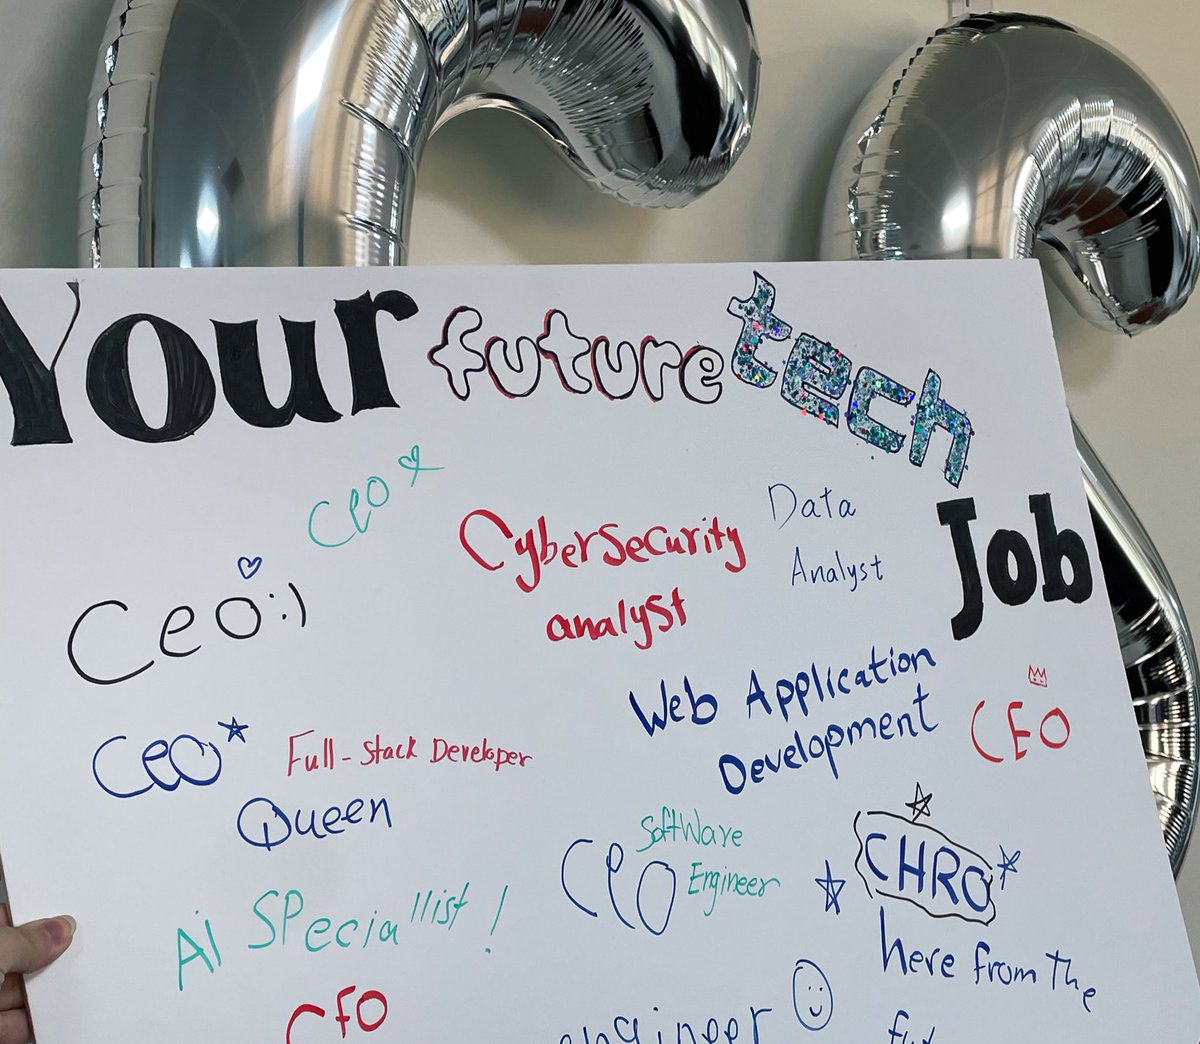 Your future tech
Job
Ceo
Cybersecurity
analyst
Data
Analyst
Ceo:)
Web Application
Development
CEO
Ceo
Full-Stack Developer
Queen
Software
Engineer
CeO
CHRO
here from the
fut
Ai SPeciallist!
CFO
engineer